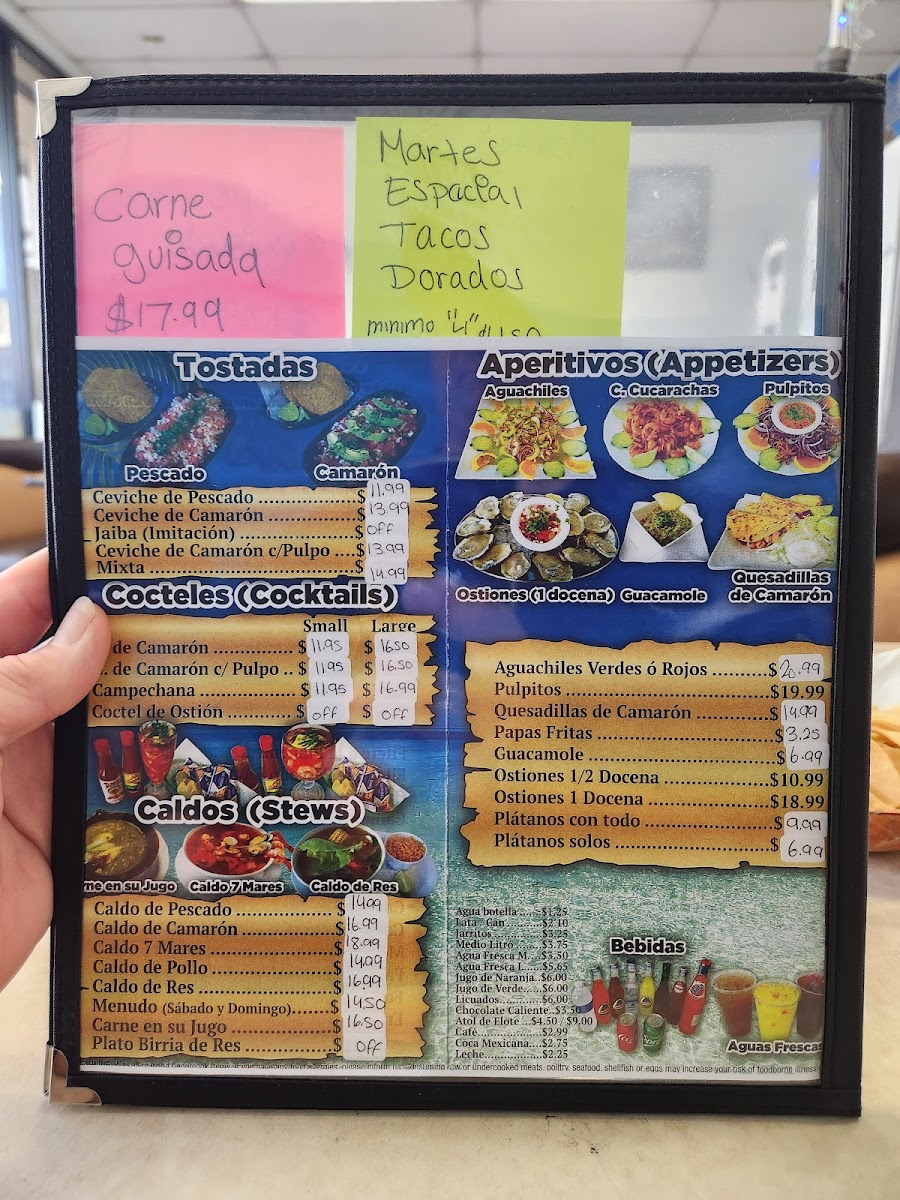 Carne
guisada
$17.99
Martes
Espacial
Tacos
Dorados
minimo "4"
Tostadas
Pescado
Camarón
Ceviche de Pescado ................$ 11.99
Ceviche de Camarón ..............$ 13.99
Jaiba (Imitación) ....................$ OFF
Ceviche de Camarón c/Pulpo ....$ 13.99
Mixta ....................................$ 14.99
Cocteles (Cocktails)
Small Large
de Camarón ............... $ 11.95 $ 16.50
. de Camarón c/ Pulpo .. $ 11.95 $ 16.50
Campechana ............... $ 11.95 $ 16.99
Coctel de Ostión .......... $ OFF $ OFF
Caldos (Stews)
ne en su Jugo
Caldo 7 Mares
Caldo de Res
Caldo de Pescado ................ $ 14.99
Caldo de Camarón ............... $ 16.99
Caldo 7 Mares .................... $ 18.99
Caldo de Pollo .................... $ 14.99
Caldo de Res ....................... $ 16.99
Menudo (Sábado y Domingo).......$ 14.50
Carne en su Jugo ................ $ 16.50
Plato Birria de Res ...............$ OFF
Aperitivos (Appetizers)
Aguachiles
C. Cucarachas
Pulpitos
Ostiones (1 docena)
Guacamole
Quesadillas
de Camarón
Aguachiles Verdes ó Rojos ..........$ 20.99
Pulpitos ...................................$19.99
Quesadillas de Camarón .............$ 14.99
Papas Fritas ..............................$ 3.25
Guacamole ................................$ 6.99
Ostiones 1/2 Docena ..................$10.99
Ostiones 1 Docena .....................$18.99
Plátanos con todo ......................$ 9.99
Plátanos solos ...........................$ 6.99
Agua botella ......$1.25
Lata / Can .........$2.10
Jarritos.............$3.25
Medio Litro .......$3.75
Agua Fresca M...$3.50
Agua Fresca L....$5.65
Jugo de Naranja..$6.00
Jugo de Verde.....$6.00
Licuados............$6.00
Chocolate Caliente..$3.50
Atol de Elote ...$4.50 / $9.00
Café..................$2.99
Coca Mexicana....$2.75
Leche................$2.25
Bebidas
Aguas Frescas
consuming raw or undercooked meats, poultry, seafood, shellfish or eggs may increase your risk of foodborne illness